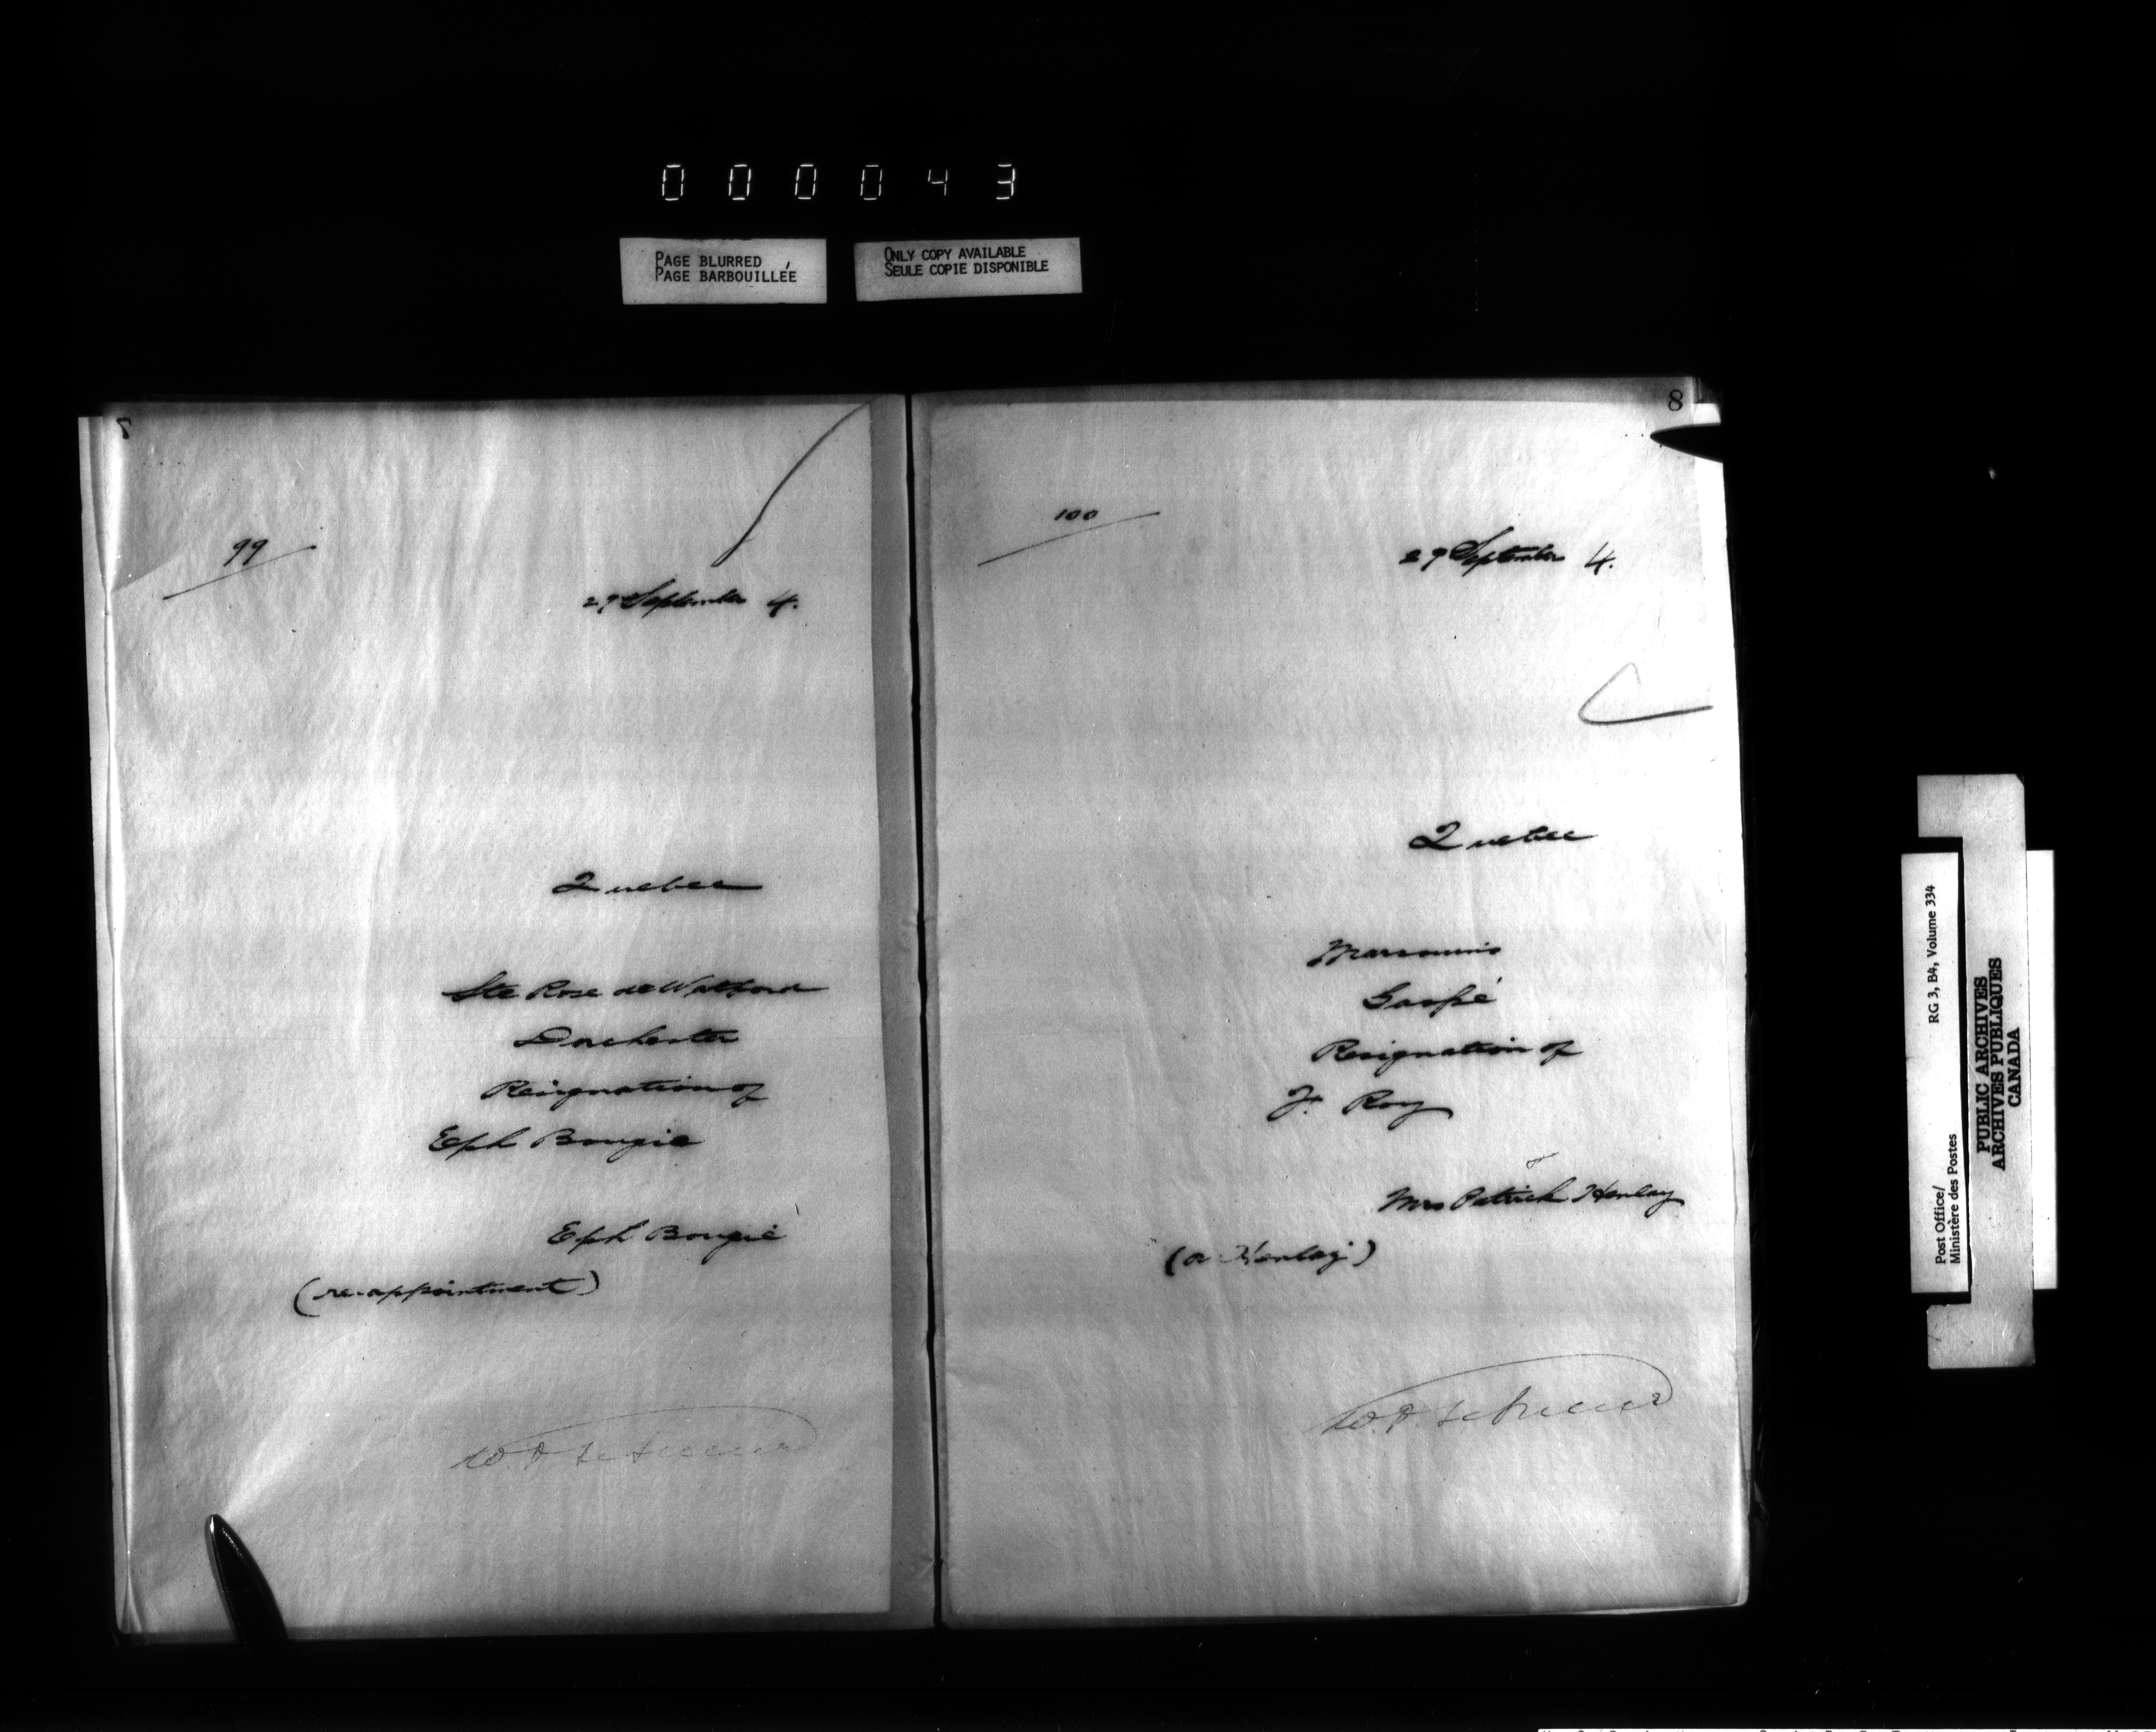 000043
PAGE BLURRED
PAGE BARBOUILLÉE
ONLY COPY AVAILABLE
SEULE COPIE DISPONIBLE
7
99
29 September 4.
Quebec
Ste Rose de Watford
Dorchester
Resignation of
Eph Bougie
Eph Bougie
(re-appointment)
8
100
29 September 4.
Quebec
Marsouins
Gaspé
Resignation of
Jr Roy
Mrs Patrick Henley
(a Henley)
Post Office/
Ministère des Postes
RG 3, B4, Volume 334
PUBLIC ARCHIVES
ARCHIVES PUBLIQUES
CANADA